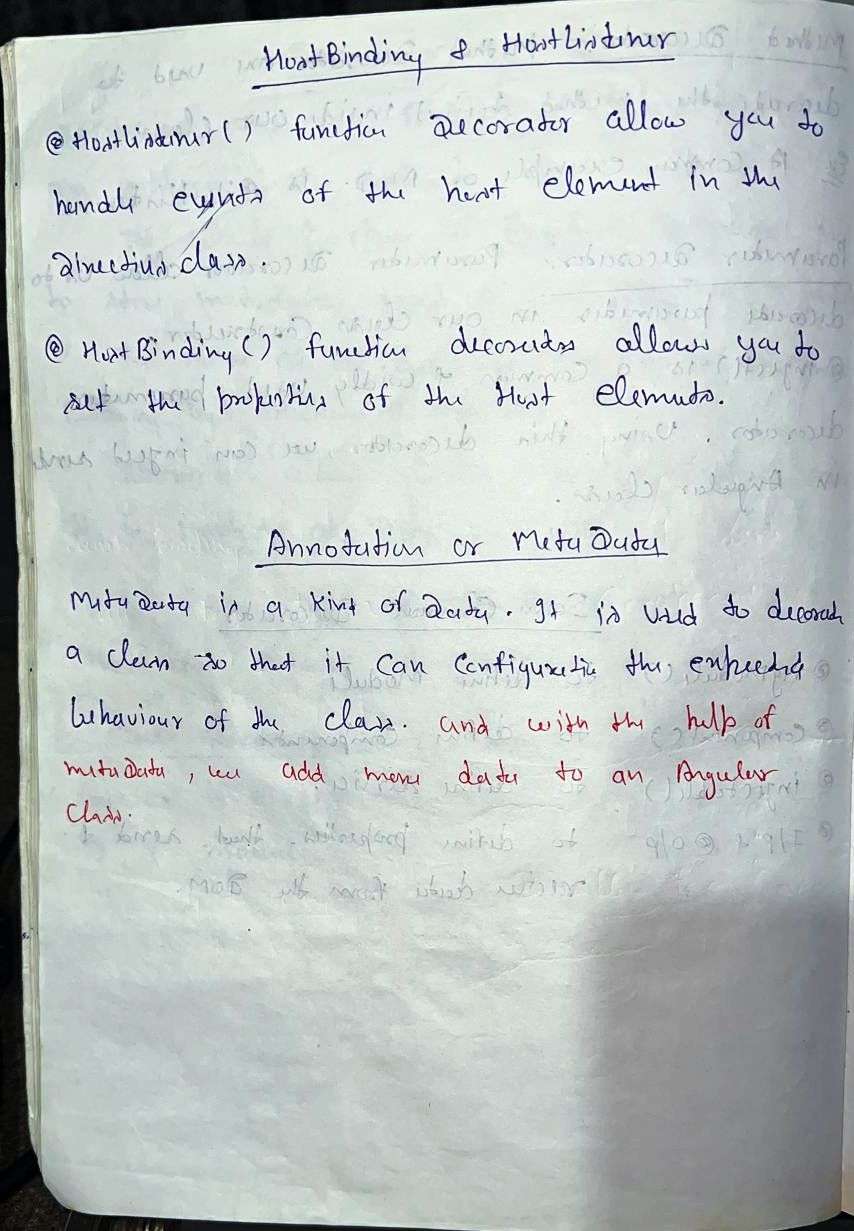 HostBinding & HostListener
@HostListener() function Decorator allow you to
handle events of the host element in the
Directive class.
@HostBinding() function decorator allows you to
set the properties of the Host elements.
Annotation or MetaData
MetaData is a kind of Data. It is used to decorate
a class so that it can Configuretic the expected
behaviour of the class. and with the help of
metaData, we add more data to an Angular
Class.